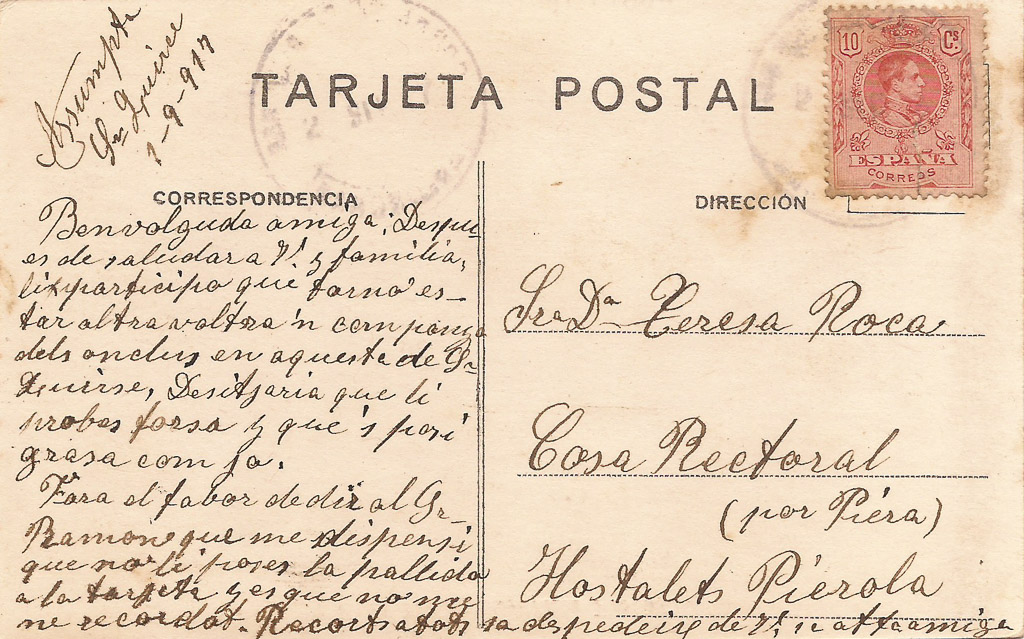 Assumpta
Sn Quirse
1-9-917
TARJETA POSTAL
10 Cs.
ESPAÑA
CORREOS
CORRESPONDENCIA
Benvolguda amiga: Despu-
es de saludar a V. y familia,
li participo que torno es-
tar altra voltra 'n companya
dels oncles en aquesta de Sn
Quirse, Desitjaria que li
probes forsa y que 's posi
grasa com jo.
Fara el favor de dir al Sr
Ramon que me dispensi
que no li poses la pallida
a la tarjeta y es que no me
ne recordat. Recorts a tots sa despedeix de V. s. atta amiga
DIRECCIÓN
Sra Da Teresa Roca
Casa Rectoral
(por Piera)
Hostalets Pierola